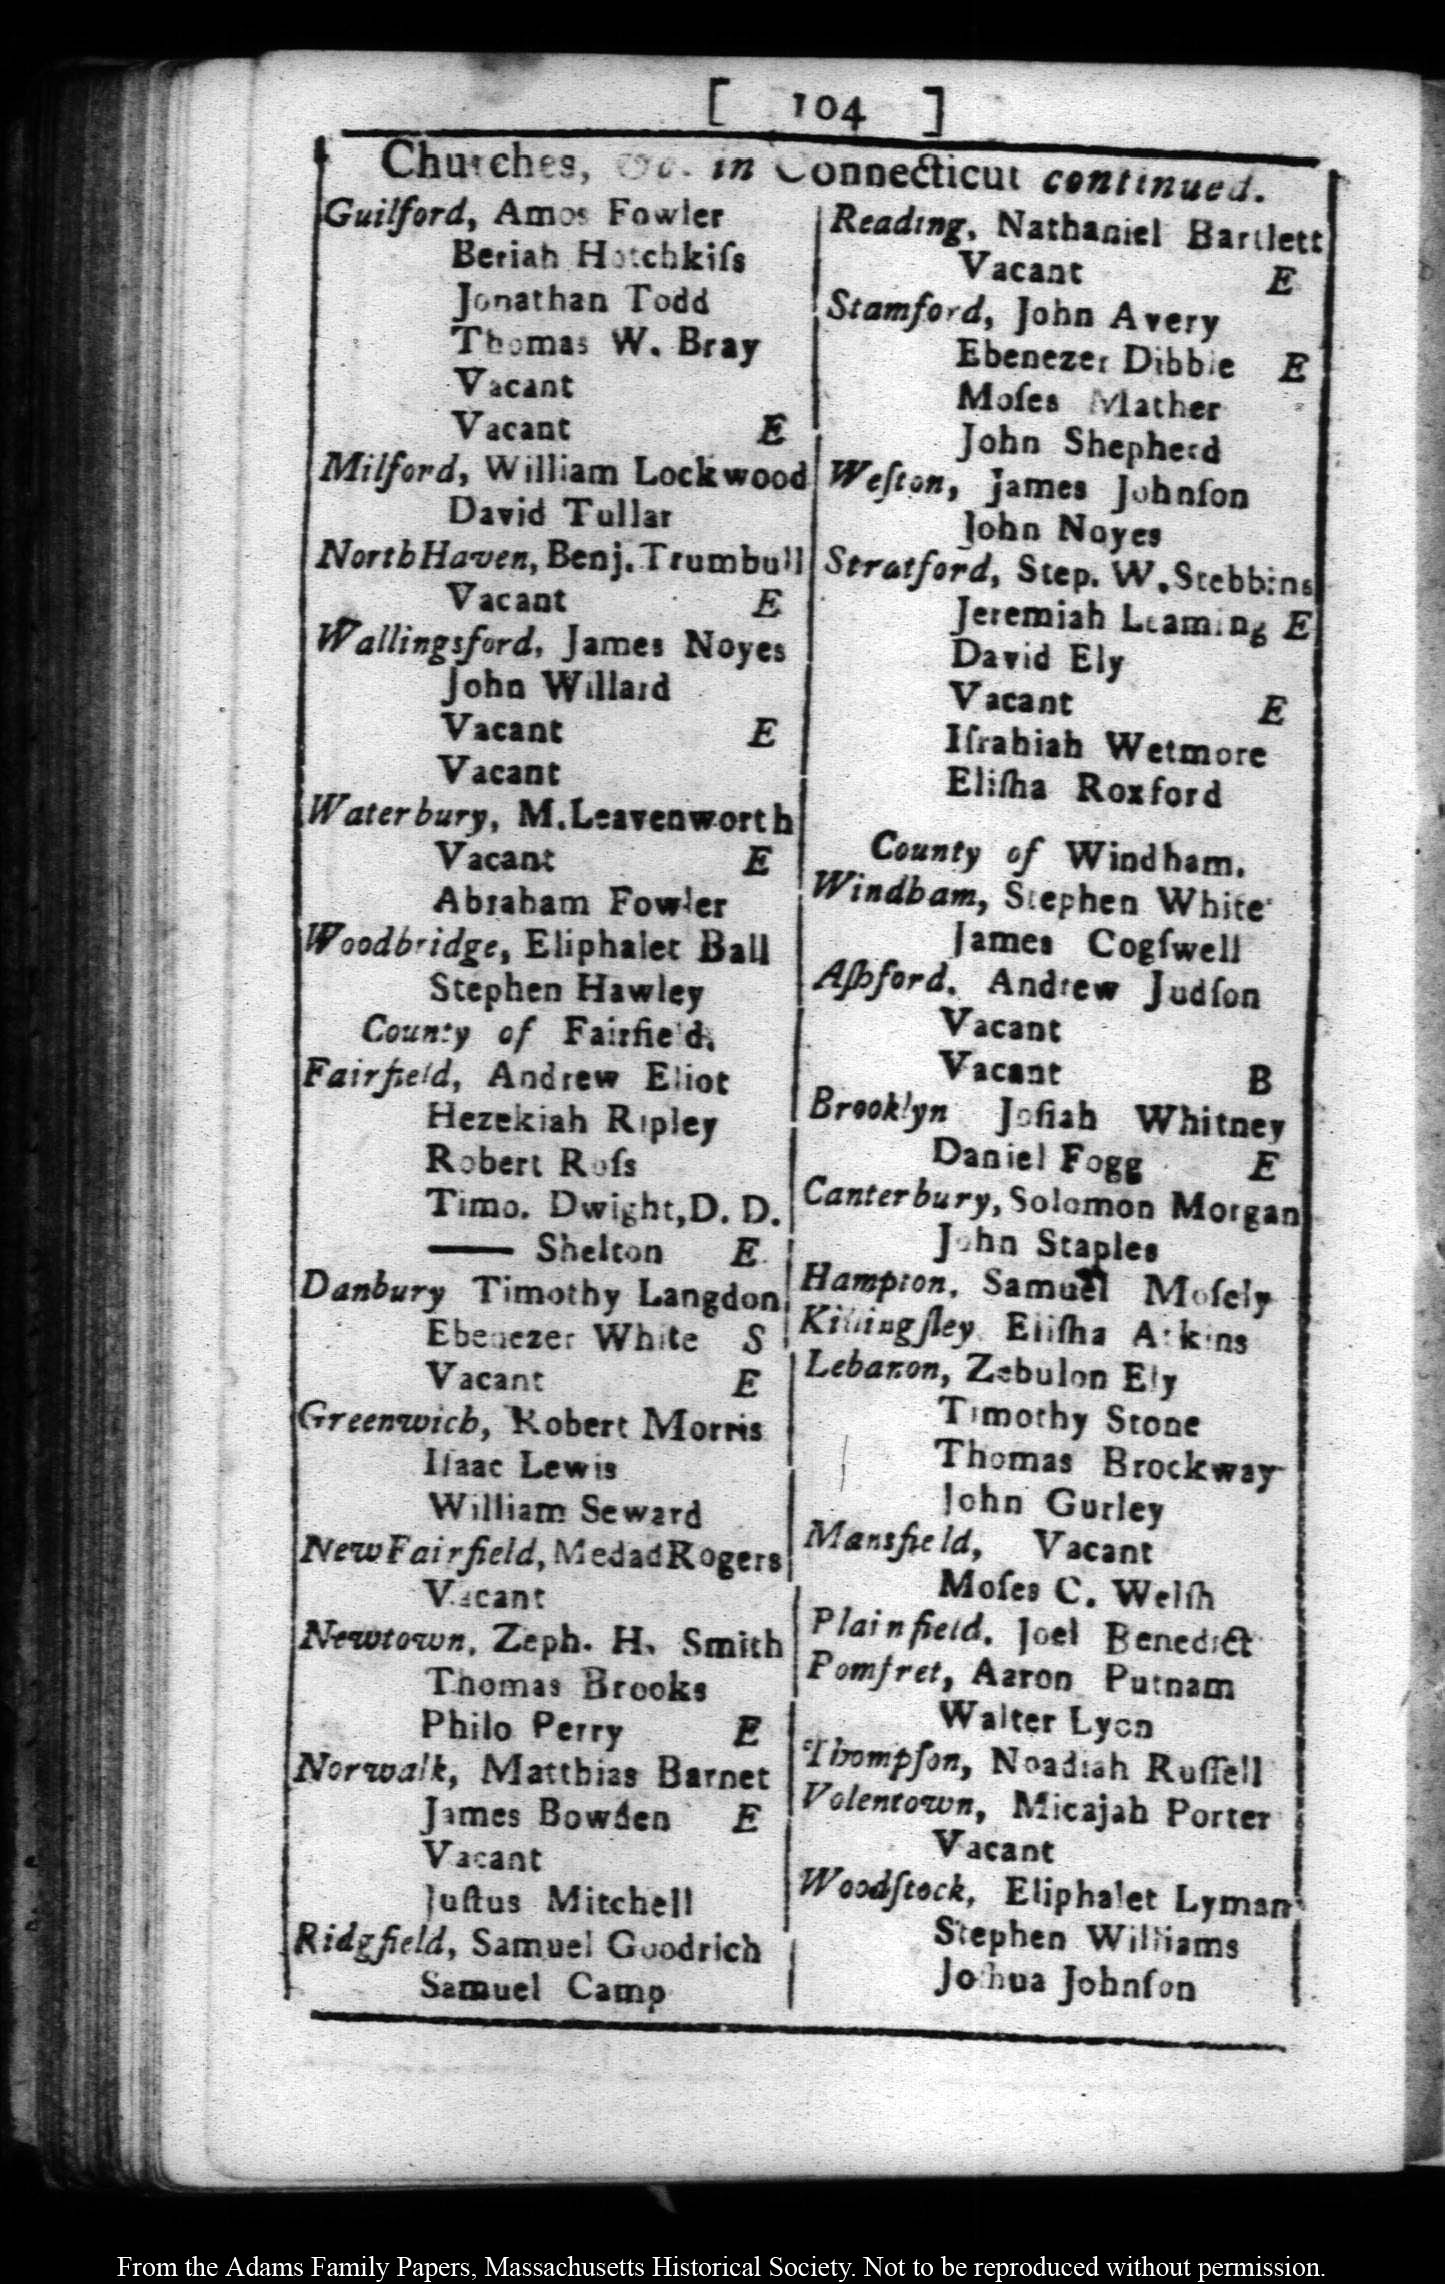 [ 104 ]
Churches, &c. in Connecticut continued.
Guilford, Amos Fowler
Beriah Hotchkiſs
Jonathan Todd
Thomas W. Bray
Vacant
Vacant E
Milford, William Lockwood
David Tullar
North Haven, Benj. Trumbull
Vacant E
Wallingsford, James Noyes
John Willard
Vacant E
Vacant
Waterbury, M. Leavenworth
Vacant E
Abraham Fowler
Woodbridge, Eliphalet Ball
Stephen Hawley
County of Fairfield.
Fairfield, Andrew Eliot
Hezekiah Ripley
Robert Roſs
Timo. Dwight, D. D.
—— Shelton E
Danbury Timothy Langdon
Ebenezer White S
Vacant E
Greenwich, Robert Morris
Iſaac Lewis
William Seward
New Fairfield, Medad Rogers
Vacant
Newtown, Zeph. H. Smith
Thomas Brooks
Philo Perry E
Norwalk, Matthias Barnet
James Bowden E
Vacant
Juſtus Mitchell
Ridgfield, Samuel Goodrich
Samuel Camp
Reading, Nathaniel Bartlett
Vacant E
Stamford, John Avery
Ebenezer Dibble E
Moſes Mather
John Shepherd
Weſton, James Johnſon
John Noyes
Stratford, Step. W. Stebbins
Jeremiah Leaming E
David Ely
Vacant E
Iſrahiah Wetmore
Eliſha Roxford
County of Windham.
Windham, Stephen White
James Cogſwell
Aſhford, Andrew Judſon
Vacant
Vacant B
Brooklyn Joſiah Whitney
Daniel Fogg E
Canterbury, Solomon Morgan
John Staples
Hampton, Samuel Moſely
Killingſley Eliſha Atkins
Lebanon, Zebulon Ely
Timothy Stone
Thomas Brockway
John Gurley
Mansfield, Vacant
Moſes C. Welſh
Plainfield, Joel Benedict
Pomfret, Aaron Putnam
Walter Lyon
Thompſon, Noadiah Ruſſell
Volentown, Micajah Porter
Vacant
Woodſtock, Eliphalet Lyman
Stephen Williams
Joſhua Johnſon
From the Adams Family Papers, Massachusetts Historical Society. Not to be reproduced without permission.